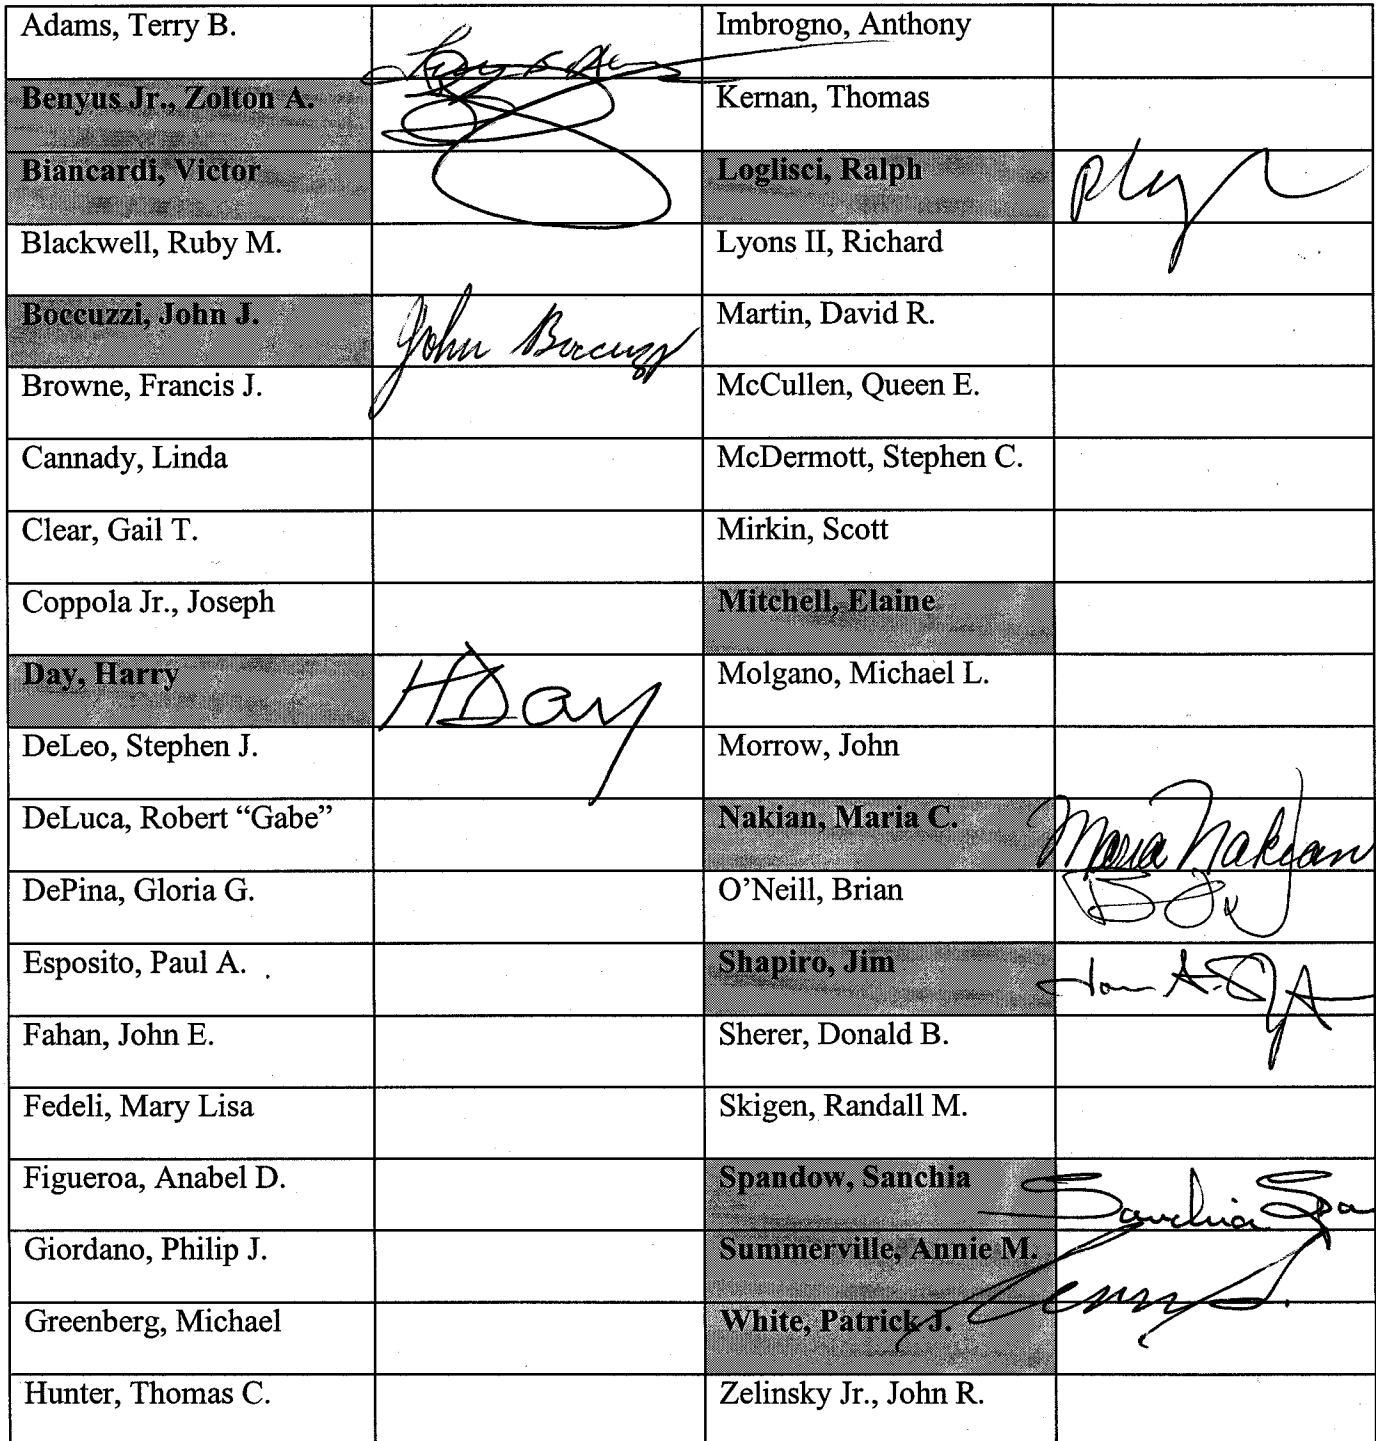 Adams, Terry B. Imbrogno, Anthony
Benyus Jr., Zolton A. Kernan, Thomas
Biancardi, Victor Loglisci, Ralph
Blackwell, Ruby M. Lyons II, Richard
Boccuzzi, John J. John Boccuzzi Martin, David R.
Browne, Francis J. McCullen, Queen E.
Cannady, Linda McDermott, Stephen C.
Clear, Gail T. Mirkin, Scott
Coppola Jr., Joseph Mitchell, Elaine
Day, Harry HDay Molgano, Michael L.
DeLeo, Stephen J. Morrow, John
DeLuca, Robert “Gabe” Nakian, Maria C. Maria Nakian
DePina, Gloria G. O’Neill, Brian
Esposito, Paul A. Shapiro, Jim
Fahan, John E. Sherer, Donald B.
Fedeli, Mary Lisa Skigen, Randall M.
Figueroa, Anabel D. Spandow, Sanchia Sanchia Spa
Giordano, Philip J. Summerville, Annie M.
Greenberg, Michael White, Patrick J.
Hunter, Thomas C. Zelinsky Jr., John R.